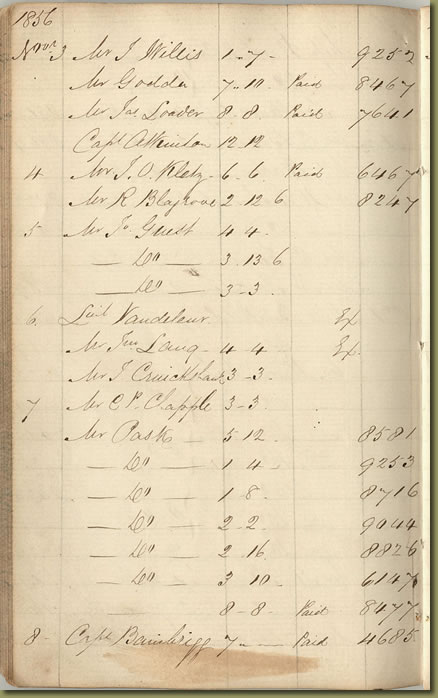 1856
Novr 3 Mr J Willis 1 - 7 - 9252
Mr Godden 7 - 10 - Paid 8467
Mr Jas Loader 8 - 8 - Paid 7641
Capt Atkinson 12 12
4 Mr J. O. - 6 - 6 Paid 6467
Mr R Blagrove 2 - 12 6 8247
5 Mr Jo Guest 4 4 -
— Do — 3 - 13 6
— Do — 3 - 3 -
6 Lieut Vandeleur Ex
Mr Lang - 4 - 4 - Ex
Mr J Cruickshank 3 - 3 -
7 Mr C P. Clapple 3 - 3 -
Mr Pask - 5 12 - 8581
— Do — 1 4 - 9253
— Do — 1 8 - 8716
— Do — 2 - 2 - 9044
— Do — 2 - 16 8826
— Do — 3 10 - 6147
— 8 - 8 - Paid 8477
8 - Capt Bainbrigge 7 - — Paid 4685